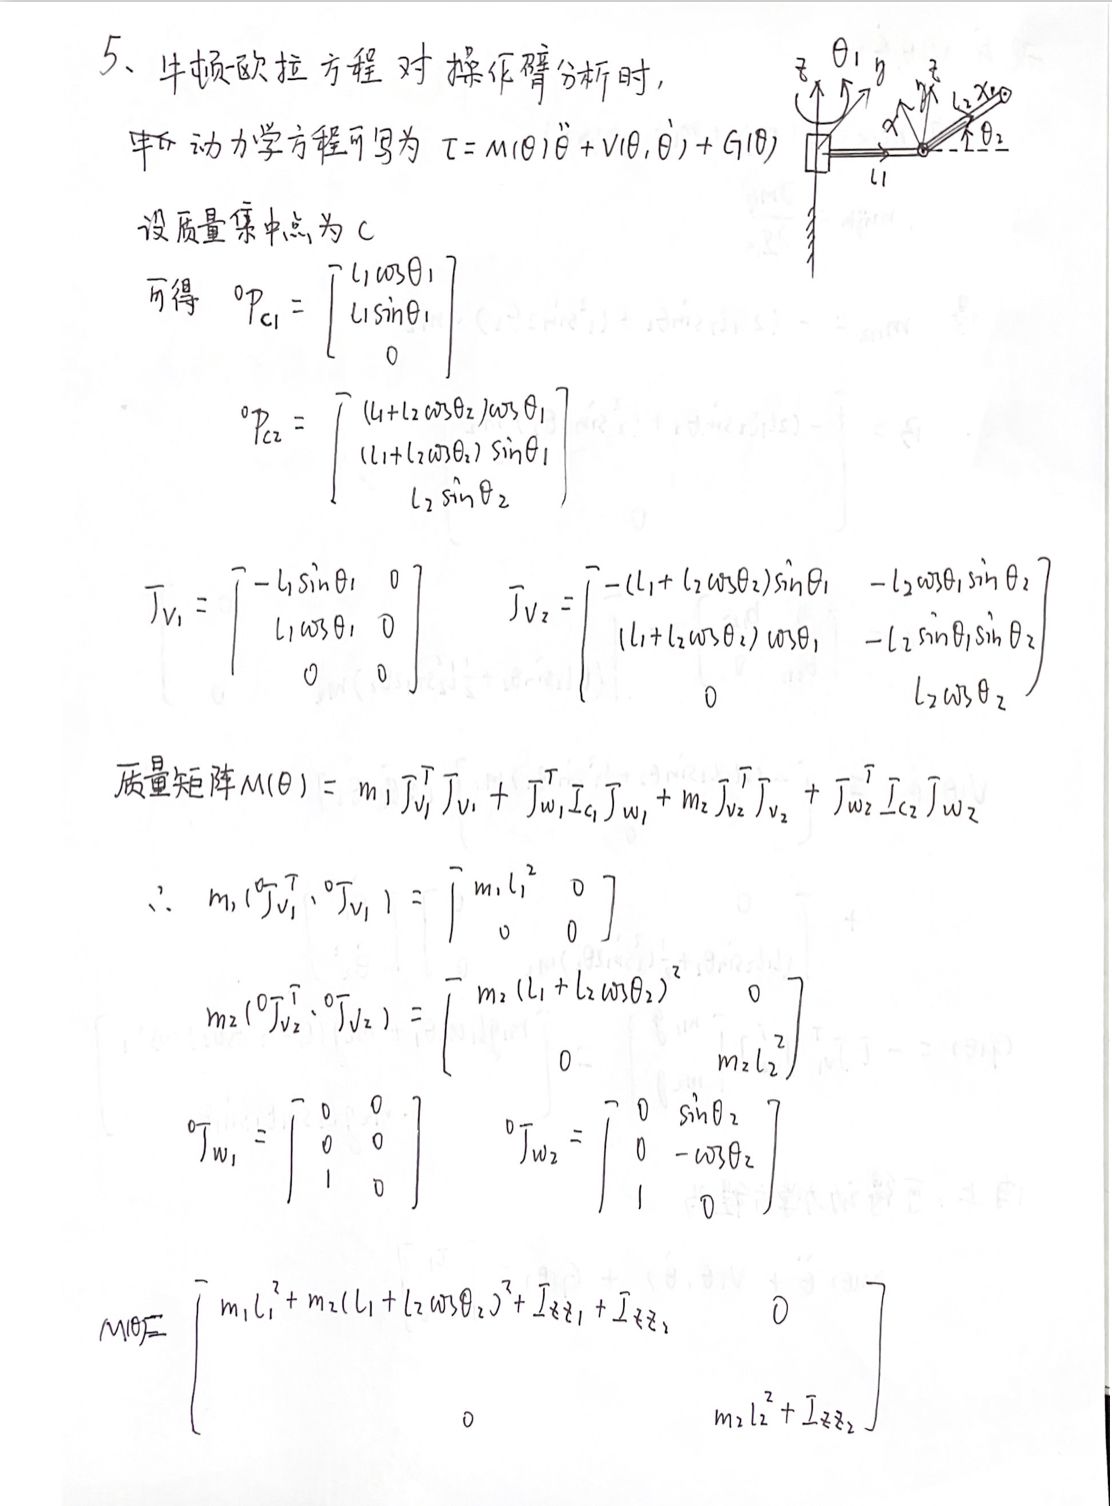 5、牛顿欧拉方程对操作臂分析时,
动力学方程可写为 τ = M(θ)θ̈ + V(θ,θ̇) + G(θ)
z θ₁ y z x L₂ θ₂ L₁
设质量集中点为 C
可得 ⁰P_C₁ = [ L₁cosθ₁
L₁sinθ₁
0 ]
⁰P_C₂ = [ (L₁+L₂cosθ₂)cosθ₁
(L₁+L₂cosθ₂)sinθ₁
L₂sinθ₂ ]
J_V₁ = [ -L₁sinθ₁ 0
L₁cosθ₁ 0
0 0 ]
J_V₂ = [ -(L₁+L₂cosθ₂)sinθ₁ -L₂cosθ₁sinθ₂
(L₁+L₂cosθ₂)cosθ₁ -L₂sinθ₁sinθ₂
0 L₂cosθ₂ ]
质量矩阵M(θ) = m₁J_V₁ᵀJ_V₁ + J_W₁ᵀI_C₁J_W₁ + m₂J_V₂ᵀJ_V₂ + J_W₂ᵀI_C₂J_W₂
∴ m₁(⁰J_V₁ᵀ·⁰J_V₁) = [ m₁L₁² 0
0 0 ]
m₂(⁰J_V₂ᵀ·⁰J_V₂) = [ m₂(L₁+L₂cosθ₂)² 0
0 m₂L₂² ]
⁰J_W₁ = [ 0 0
0 0
1 0 ]
⁰J_W₂ = [ 0 sinθ₂
0 -cosθ₂
1 0 ]
M(θ)= [ m₁L₁²+m₂(L₁+L₂cosθ₂)²+I_zz₁+I_zz₂ 0
0 m₂L₂²+I_zz₂ ]